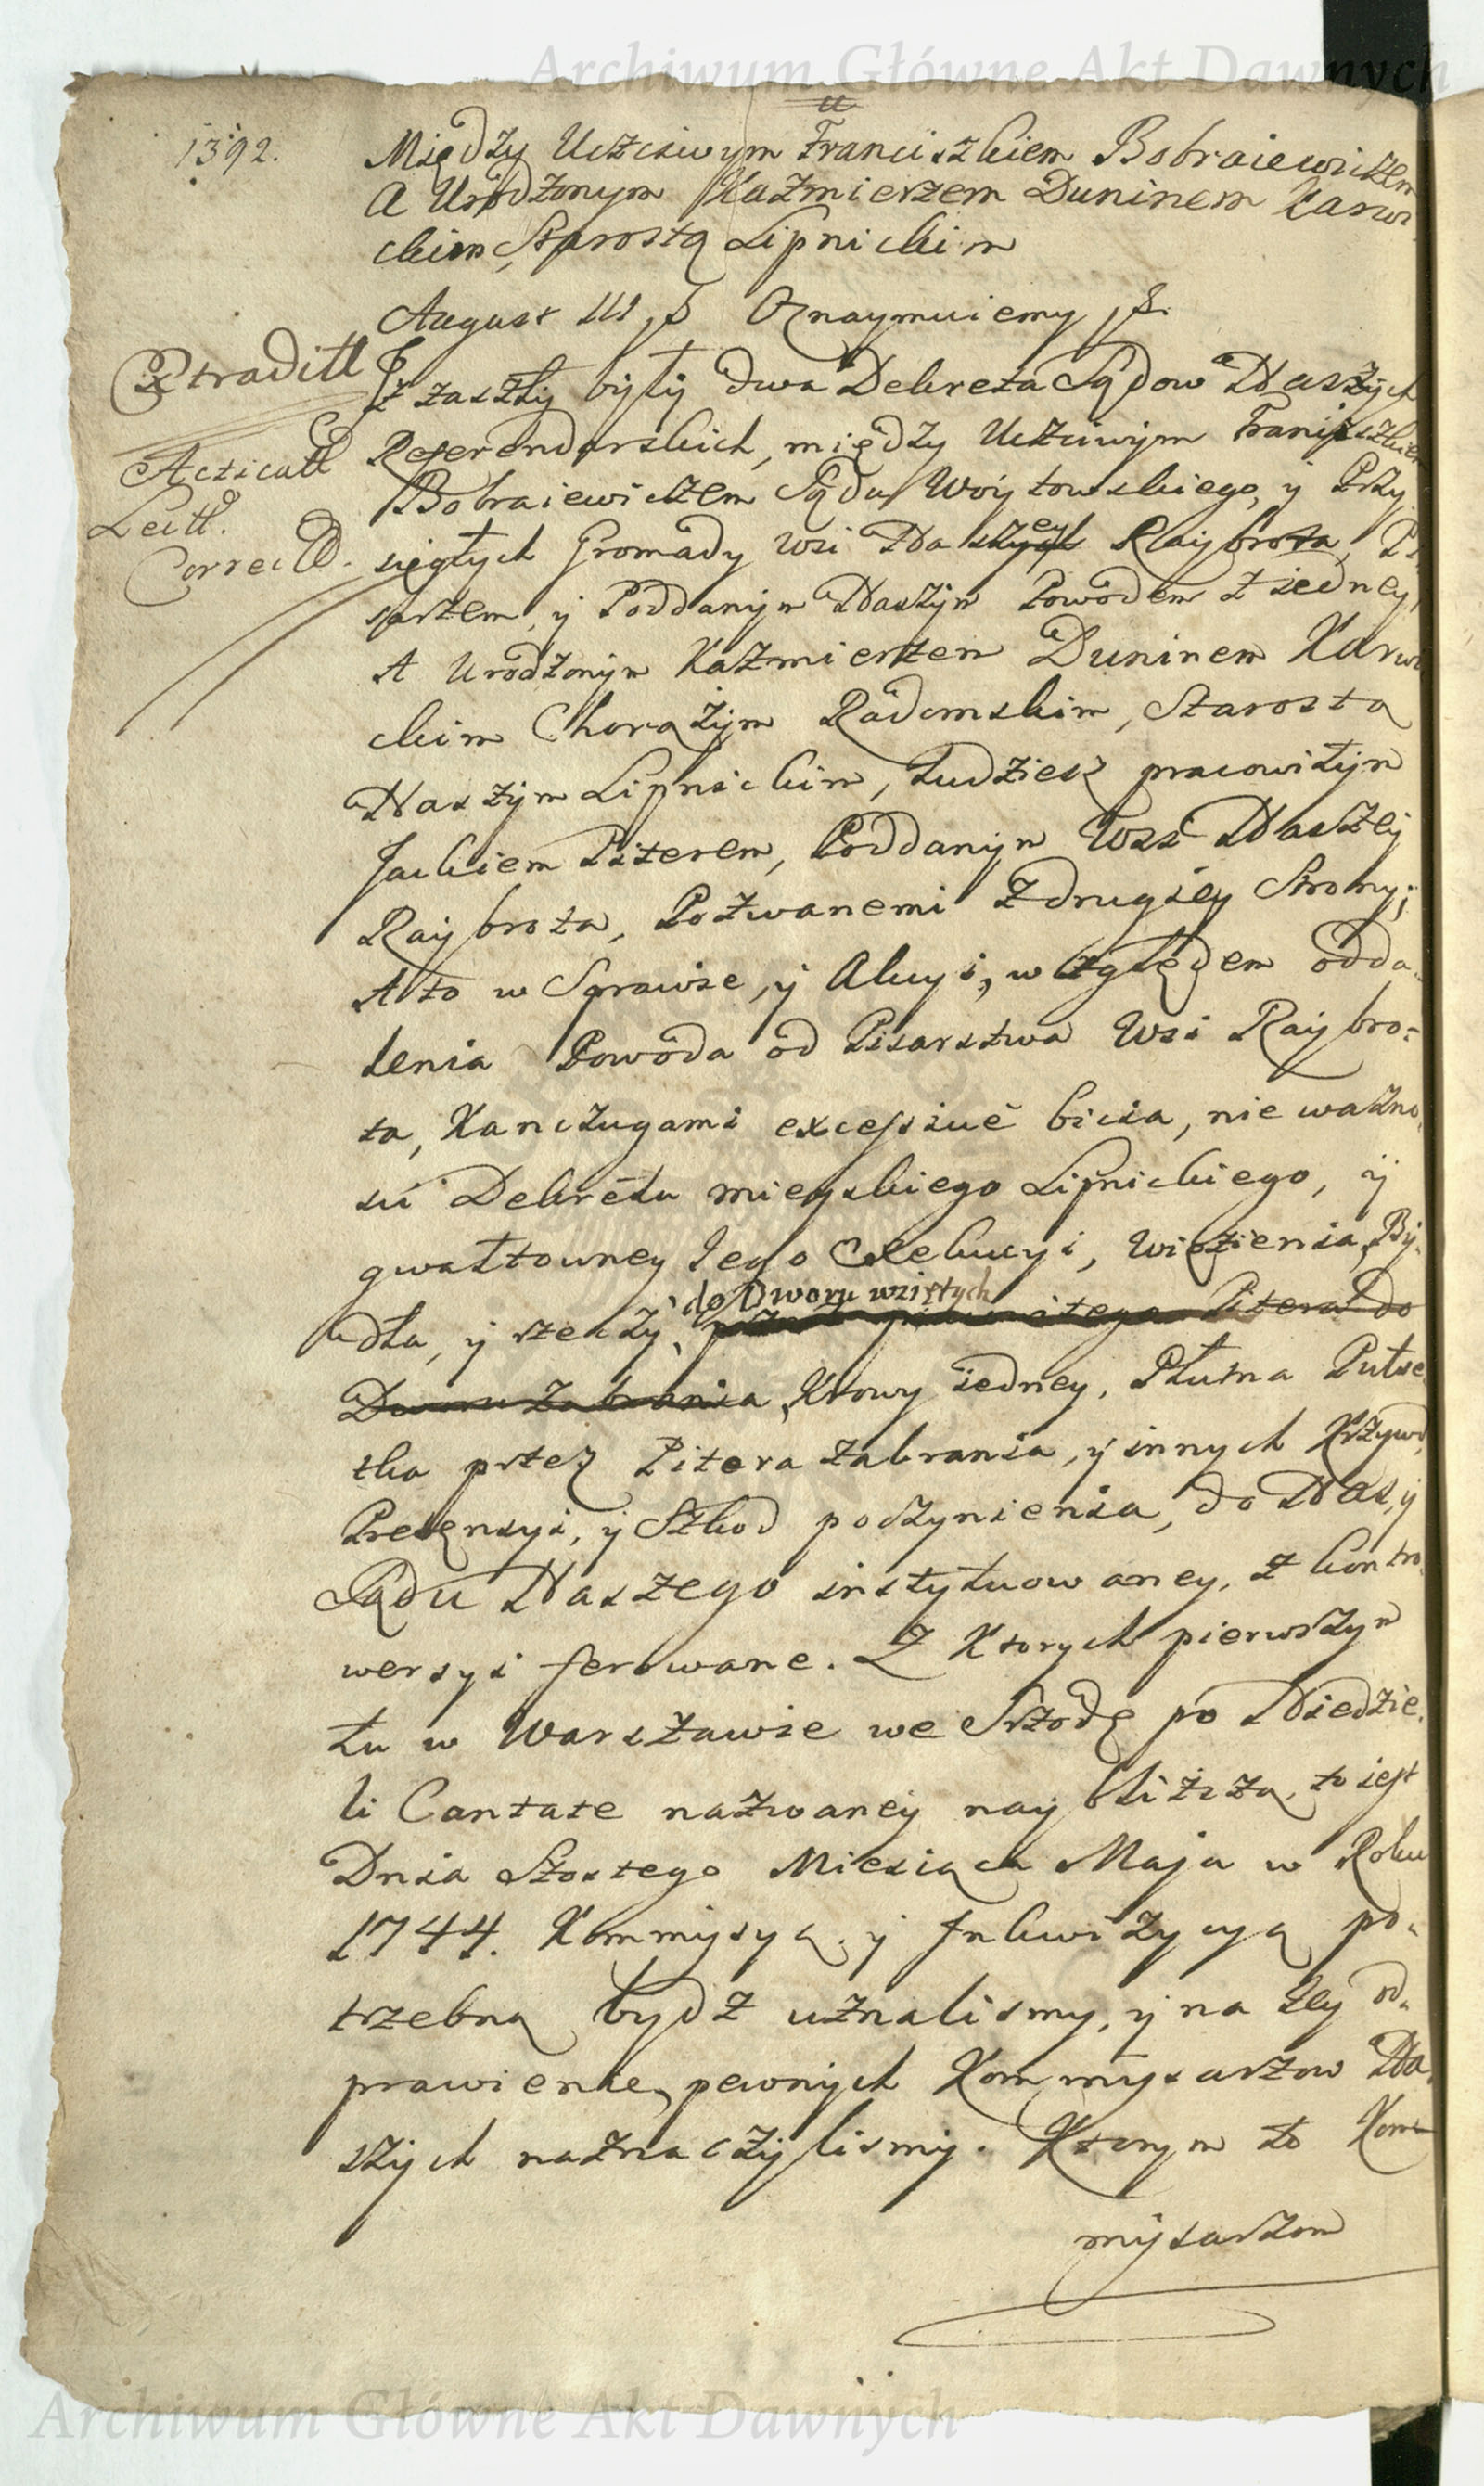 Archiwum Główne Akt Dawnych
1392.
Między Uczciwym Franciszkiem Bobraiewiczem
A Urodzonym Kazmierzem Duninem Karwi
ckim, Starostą Lipnickim
August III, &. Oznaymuiemy, &.
Extraditt
Iż zaszły były dwa Dekreta Sądow Naszych
Referendarskich, między Uczciwym Franciszkiem
Acticatt
Bobraiewiczem Sądu Woytowskiego, y Przy
Lectt.
Correctt.
sięgłych Gromady wsi Naszey Raybrota, Pi
sarzem, y Poddanym Naszym Powodem z iedney,
A Urodzonym Kazmierzem Duninem Karwi
ckim Chorążym Radomskim, Starostą
Naszym Lipnickim, tudziesz pracowitym
Jackiem Piterem, Poddanym Wsi Naszey
Raybrota, Pozwanemi z drugiey Strony;
A to w Sprawie, y Akcyi, względem odda
lenia Powoda od Pisarstwa Wsi Raybro=
ta, Kanczugami excessivè bicia, nie wazno
sci Dekretu mieyskiego Lipnickiego, y
gwałtowney Jego Exekucyi, Więzienia, By
do Dworu wziętych
dła, y rzeczy, Pitera do
Dworu zabrania, Krowy iedney, Płutna Pułse
tka przez Pitera zabrania, y innych Krzywd,
Pretensyi, y Szkod poczynienia, do Nas, y
Sądu Naszego instytuowaney, z kontro
wersyi ferowane. Z Ktorych pierwszym
tu w Warszawie we Srzodę po Niedzie
li Cantate nazwaney nayblizszą, to iest
Dnia Szostego Miesiąca Maja w Roku
1744. Kommisyą, y Inkwizycyą po=
trzebną bydz uznalismy, y na Jey od=
prawienie, pewnych Kommysarzow Na
szych naznaczylismy. Ktorym to Kom=
mysarzom
Archiwum Główne Akt Dawnych